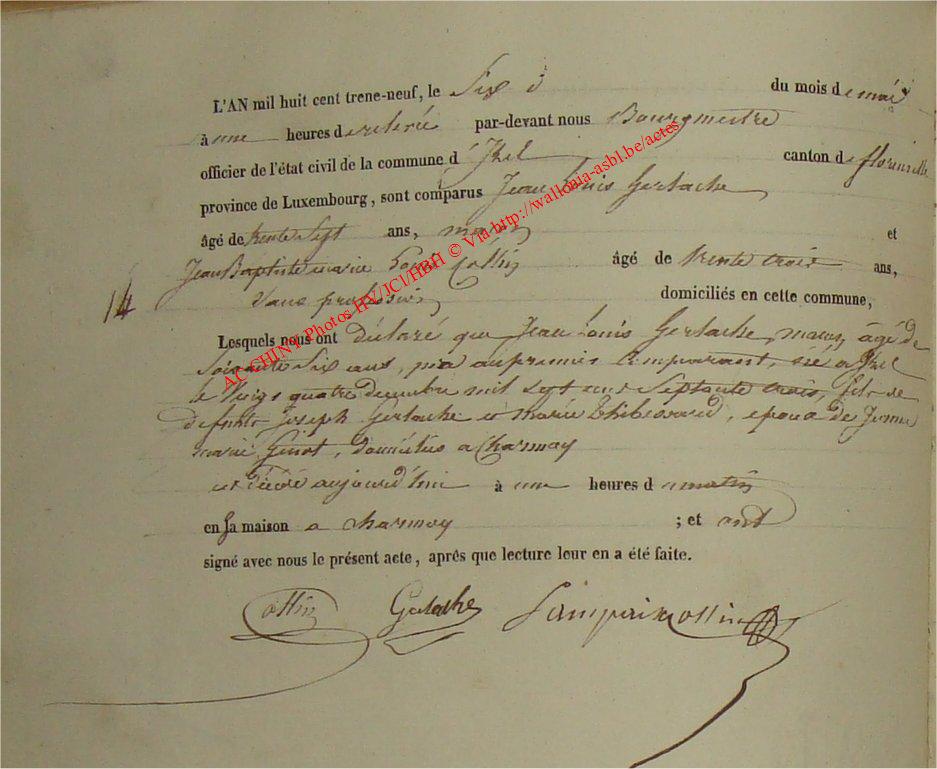 L'AN mil huit cent trene-neuf, le Six du mois de mai
à une heures de relevée par-devant nous Bourgmestre
officier de l'état civil de la commune d' Izel canton de florenville
province de Luxembourg, sont comparus Jean Louis Gerlache
âgé de trente Sept ans, et
Jean Baptiste marie Louis Collin âgé de trente trois ans,
14 Sans profession domiciliés en cette commune,
Lesquels nous ont déclaré que Jean Louis Gerlache, âgé de
Soixante Six ans, du premier Comparant, né a Izel
le vingt quatre decembre mil sept cent Septante trois, fils de
defunts Joseph Gerlache et marie, epoux de
marie Ginot, domiciliés a Charmoy
est décédé aujourd'hui à une heures d u matin
en sa maison a charmoy ; et ont
signé avec nous le présent acte, après que lecture leur en a été faite.
Collin Gerlache
AC CHINY Photos HV/JCI/HBH © Via http://wallonia-asbl.be/actes